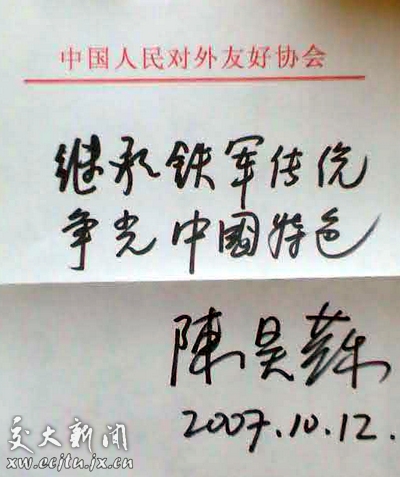 中国人民对外友好协会
继承铁军传统
争光中國特色
陳昊蘇
2007.10.12.
交大新闻
xw.ecjtu.jx.cn